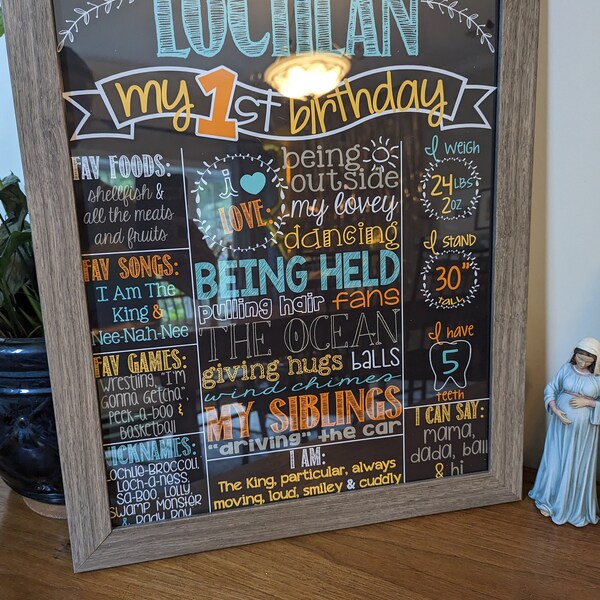 LOCHLAN
my 1st birthday
FAV FOODS:
shellfish &
all the meats
and fruits
FAV SONGS:
I Am The
King &
Nee-Nah-Nee
FAV GAMES:
wrestling, "I'm
gonna getcha",
peek-a-boo &
basketball
NICKNAMES:
Lochlie-Broccoli,
Loch-a-ness,
Sa-Boo, Lolly,
Swamp Monster
& Baby Boy
i
LOVE
being
outside
my lovey
dancing
BEING HELD
pulling hair fans
THE OCEAN
giving hugs balls
wind chimes
MY SIBLINGS
"driving" the car
I AM:
The King, particular, always
moving, loud, smiley & cuddly
I WEIGH
24 LBS
2 OZ
I STAND
30"
TALL
I have
5
teeth
I CAN SAY:
mama,
dada, ball
& hi